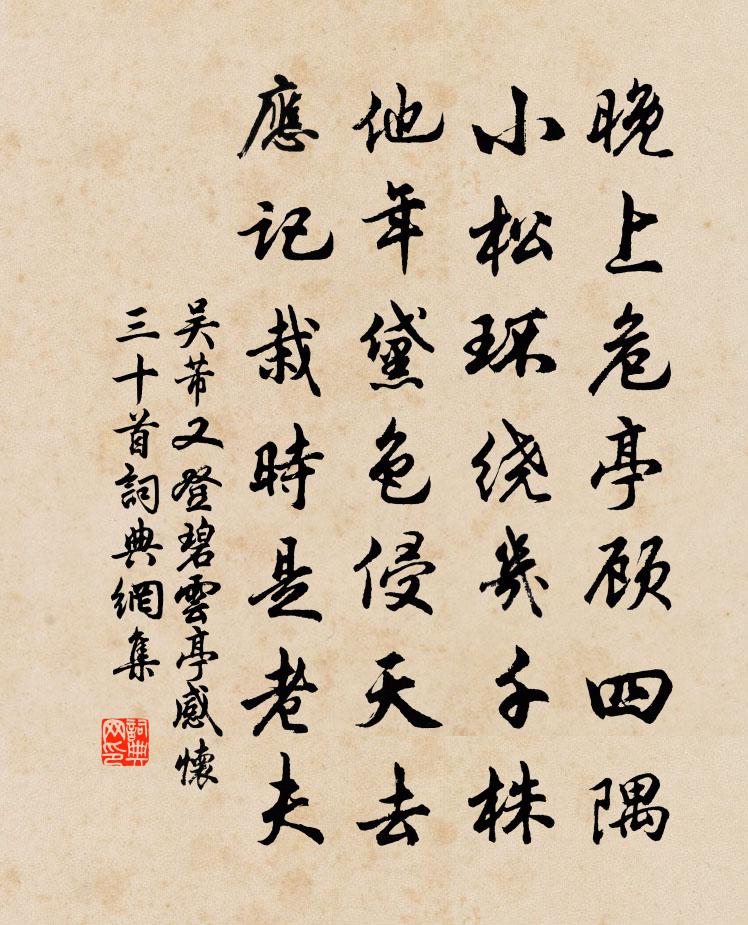 晚上危亭顾四隅
小松环绕几千株
他年黛色侵天去
應記栽時是老夫
吴芾又登碧雲亭感懷
三十首詞典網集
詞典
网印